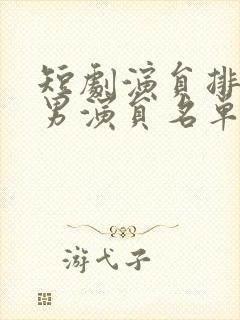 短劇演員排
男演員名單
游弋子